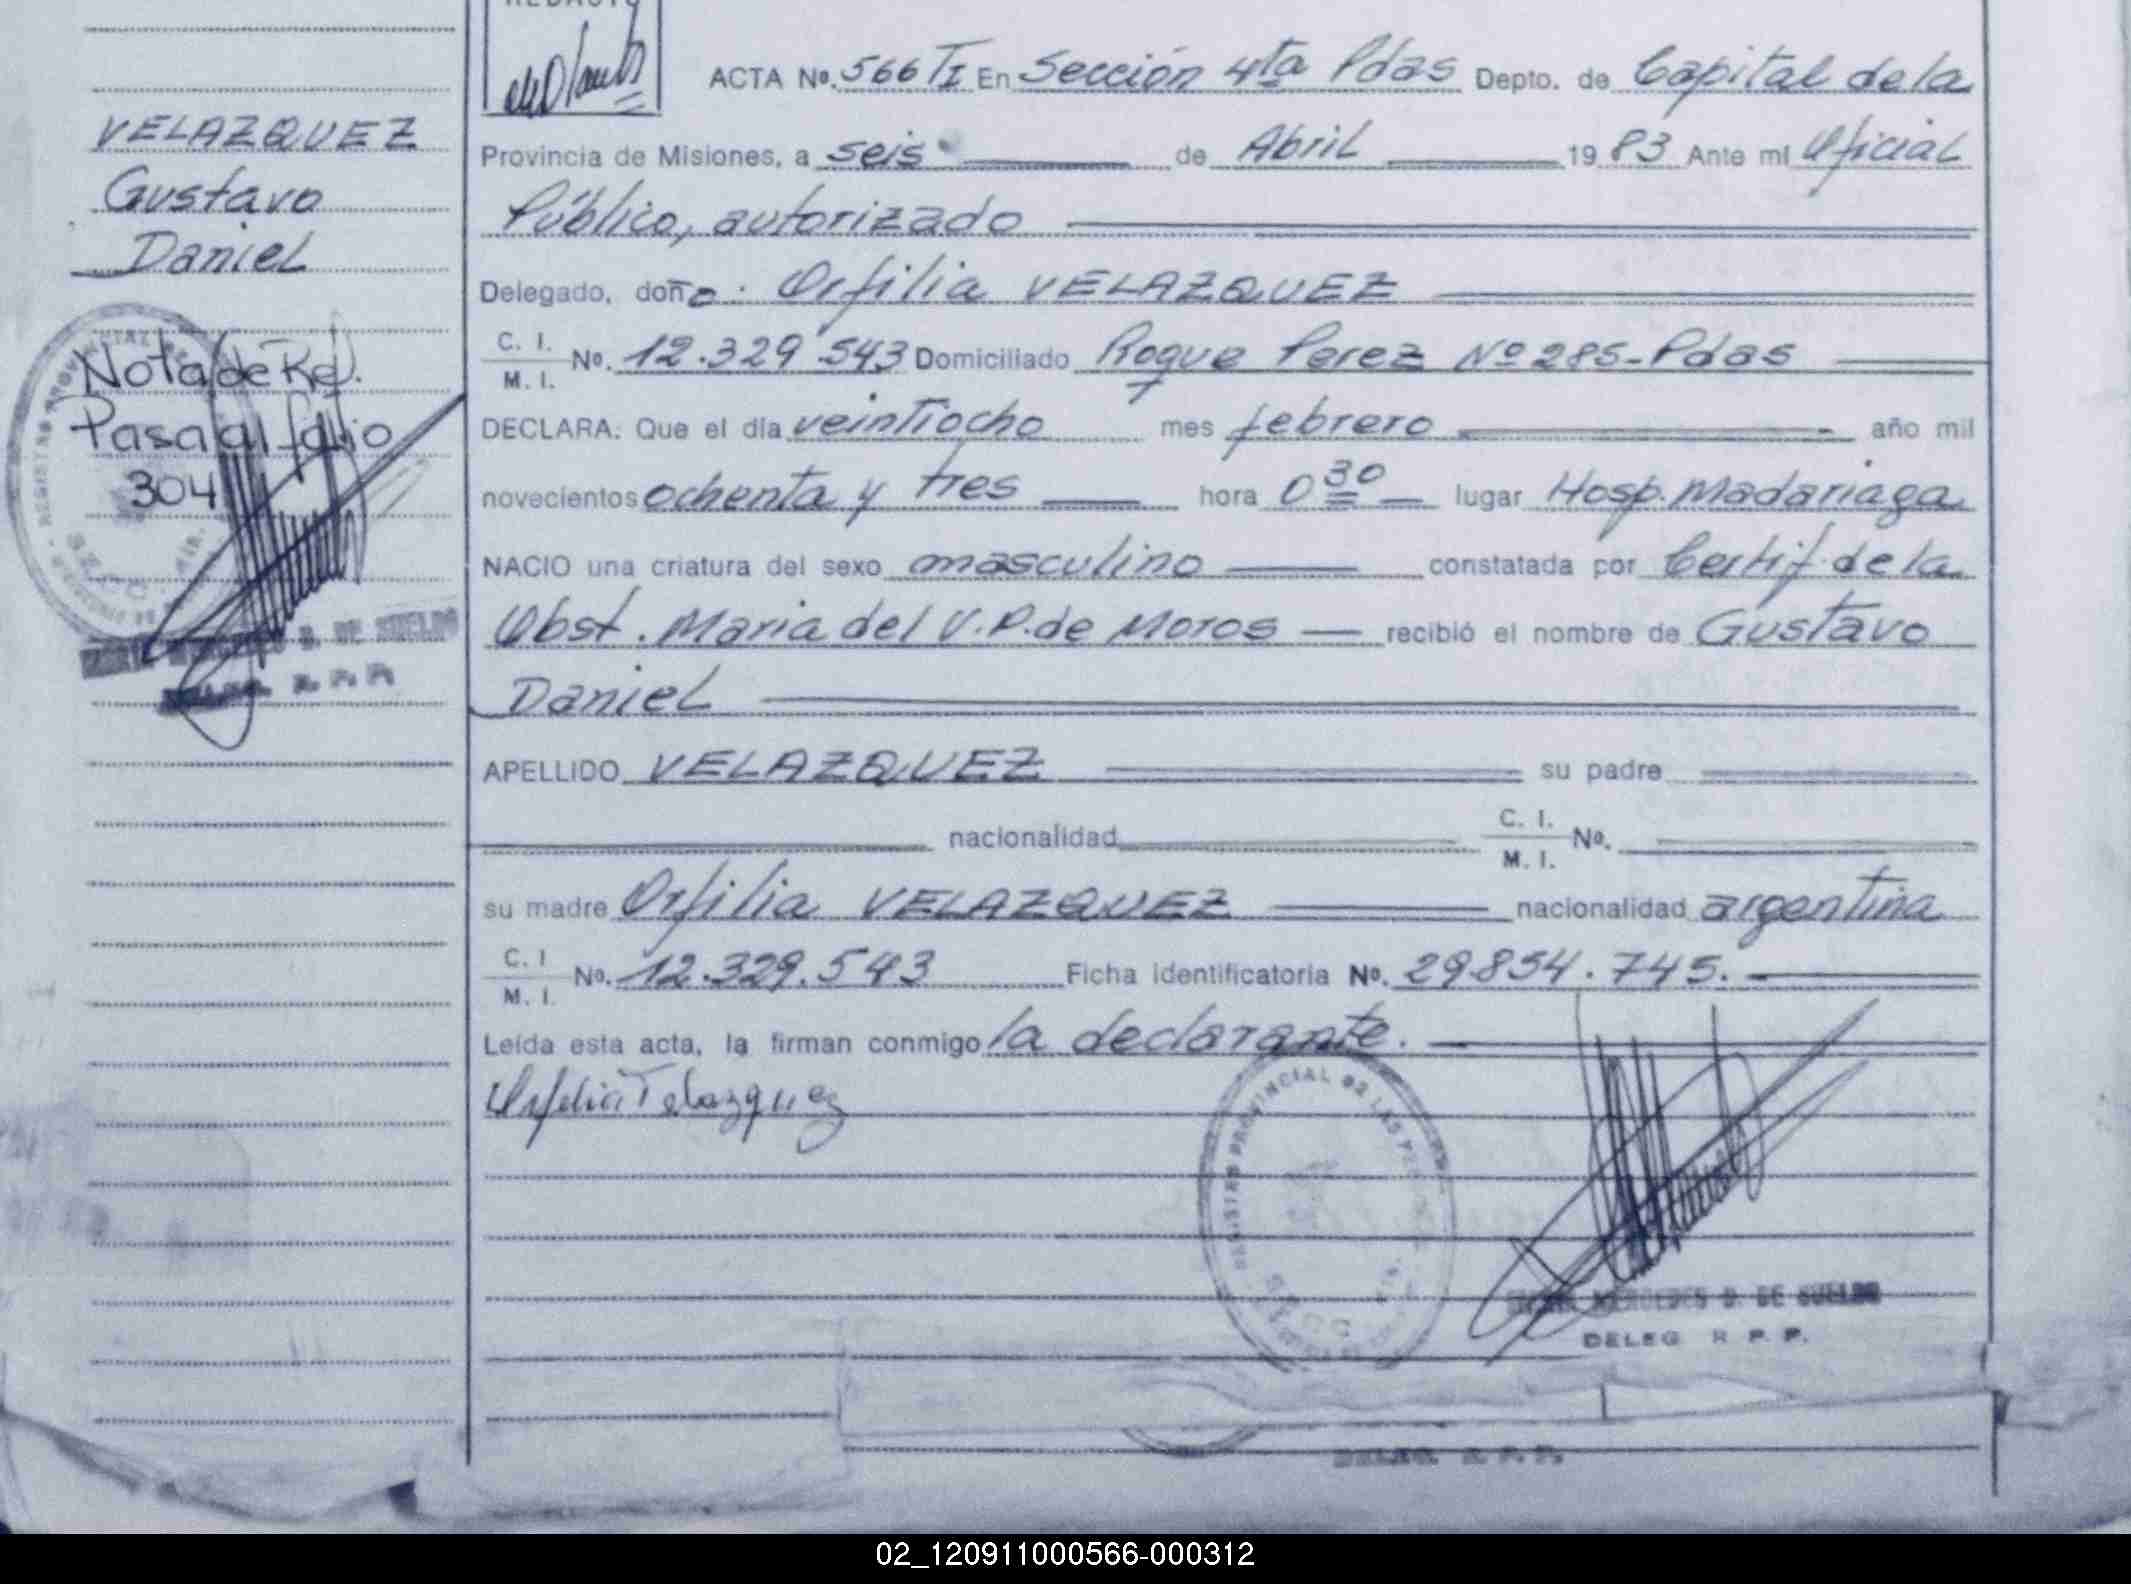 REDACTO
ACTA Nº. 566 TI En Sección 4ta Pdas Depto. de Capital de la
VELAZQUEZ
Provincia de Misiones, a seis de Abril 1983 Ante mi Oficial
Gustavo
Público, autorizado
Daniel
Delegado, doña Orfilia VELAZQUEZ
C. I.
M. I.
Nº. 12.329.543 Domiciliado Roque Perez Nº 285-Pdas
Nota de Ref.
Pasa al folio
304
DECLARA: Que el día veintiocho mes febrero año mil
novecientos ochenta y tres hora 0 30 lugar Hosp. Madariaga
NACIO una criatura del sexo masculino constatada por Certif. de la
Obst. Maria del V.P. de Moros recibió el nombre de Gustavo
D. DE SUELDO
R. P. P.
Daniel
APELLIDO VELAZQUEZ su padre
nacionalidad C. I.
M. I. Nº.
su madre Orfilia VELAZQUEZ nacionalidad argentina
C. I
M. I.
Nº. 12.329.543 Ficha identificatoria Nº. 29.854.745.
Leída esta acta, la firman conmigo la declarante.
Orfelia Velazquez
REGISTRO PROVINCIAL DE LAS PERSONAS
MERCEDES D. DE SUELDO
DELEG R. P. P.
DELEG. R. P. P.
02_120911000566-000312